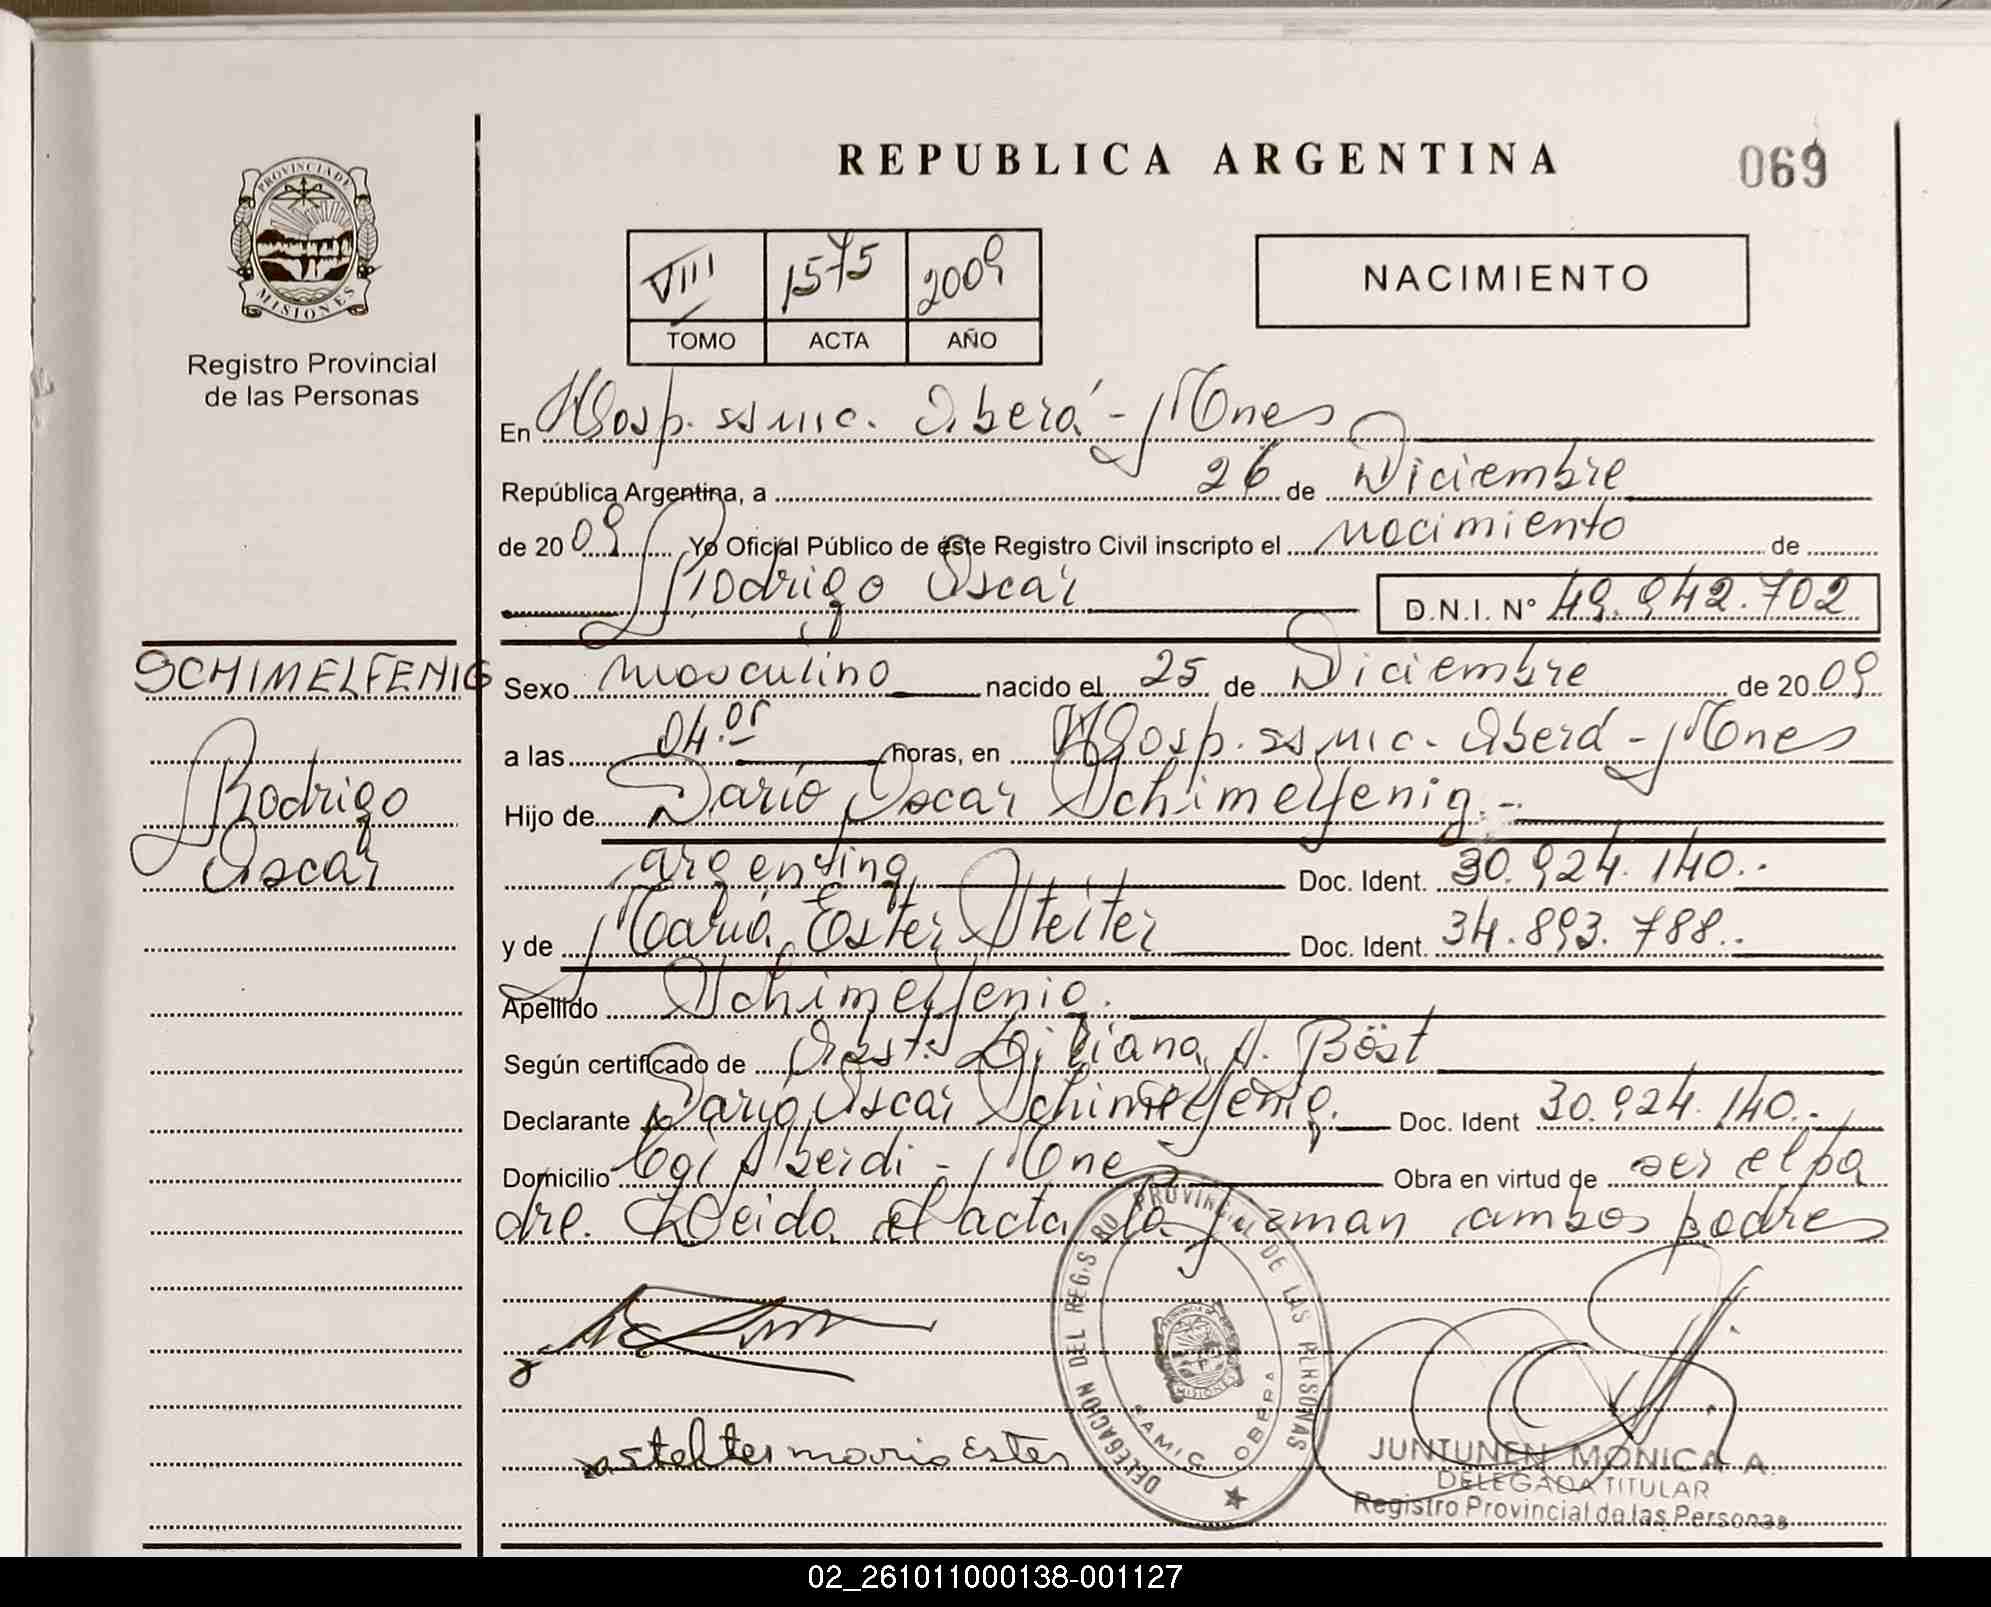 REPUBLICA ARGENTINA
069
PROVINCIA DE
MISIONES
Registro Provincial
de las Personas
VIII 1575 2009
TOMO ACTA AÑO
NACIMIENTO
En Hosp. ssmic. Oberá - Mnes
República Argentina, a 26 de Diciembre
de 20 09 Yo Oficial Público de éste Registro Civil inscripto el nacimiento de
Rodrigo Oscar D.N.I. N° 49.942.702
SCHIMELFENIG
Rodrigo
Oscar
Sexo masculino nacido el 25 de Diciembre de 20 09
a las 04. horas, en Hosp. ssmic. Oberá - Mnes
Hijo de Darío Oscar Schimelfenig.-
argentino Doc. Ident. 30.924.140..
y de María Ester Doc. Ident. 34.893.788..
Apellido Schimelfenig.
Según certificado de Obst. Liliana A. Böst
Declarante Darío Oscar Schimelfenig. Doc. Ident 30.924.140..
Domicilio Col Alberdi - Mnes Obra en virtud de ser el pa
dre. Leida el acta la firman ambos padres
DELEGACION DEL REGISTRO PROVINCIAL DE LAS PERSONAS
MISIONES
SAMIC OBERA
maria Ester
JUNTUNEN MONICA A.
DELEGADA TITULAR
Registro Provincial de las Personas
02_261011000138-001127